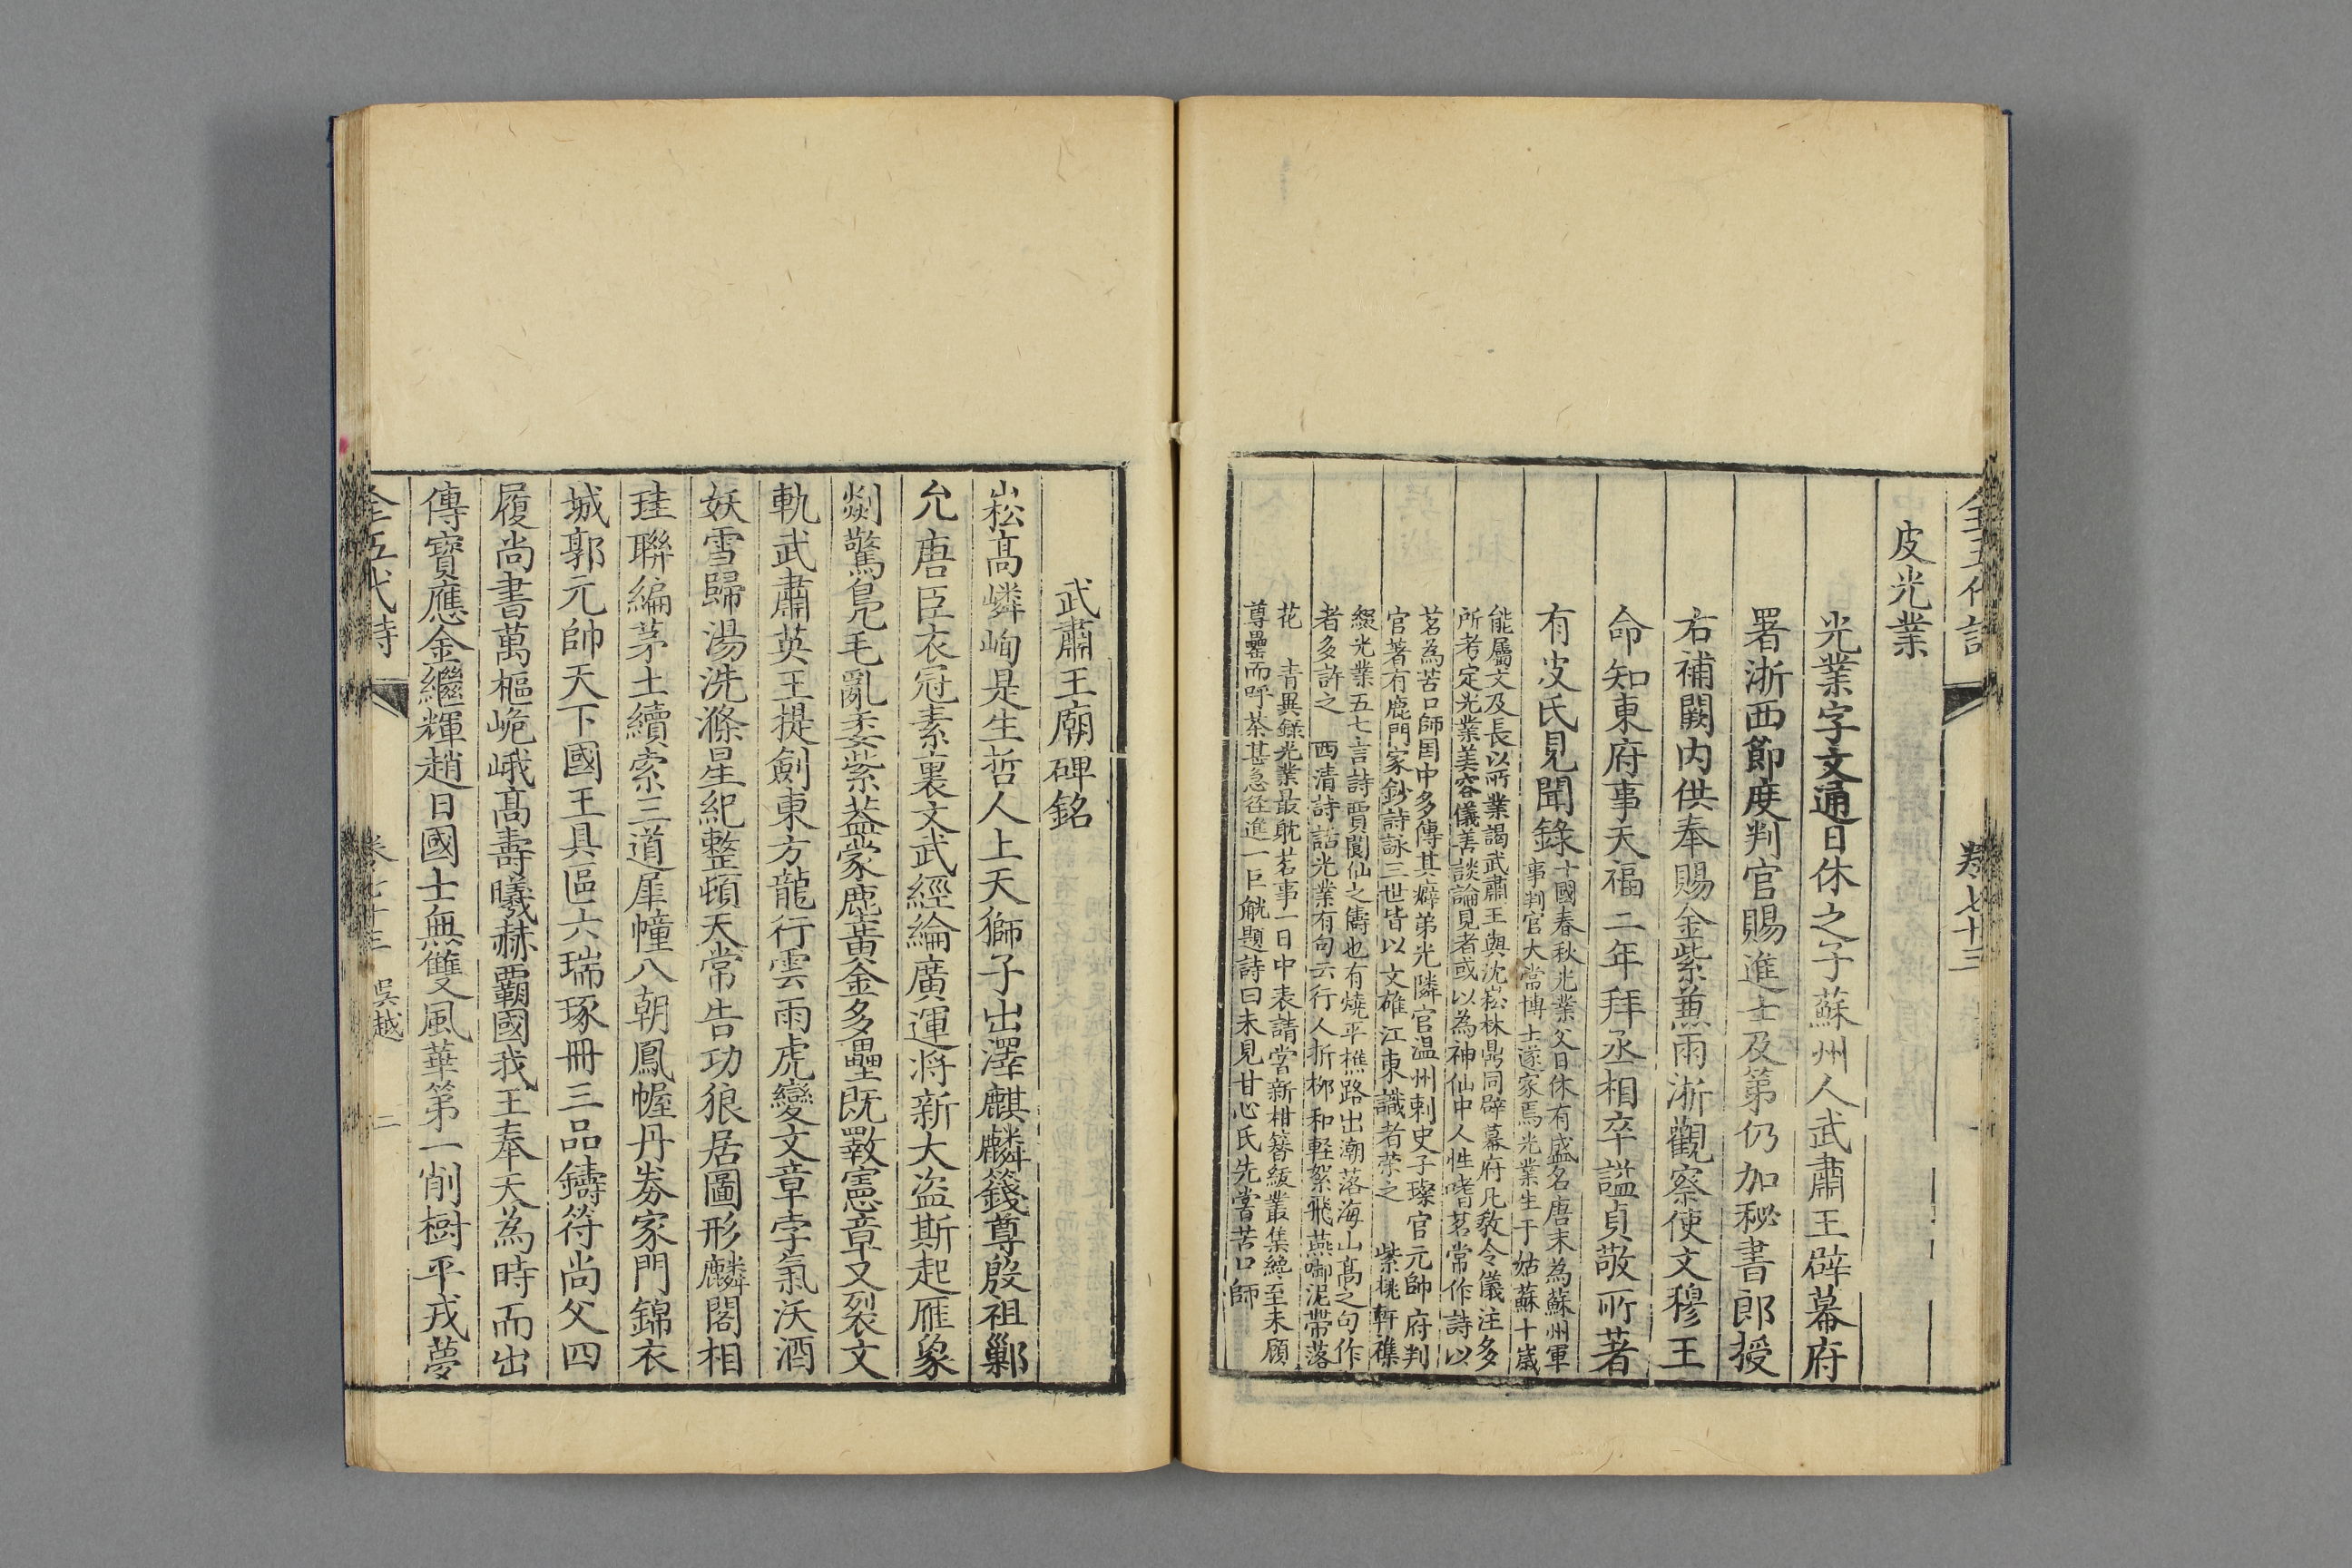 全五代詩
卷七十三
一
皮光業
光業字文通日休之子蘇州人武肅王辟幕府
署浙西節度判官賜進士及第仍加秘書郎授
右補闕内供奉賜金紫兼兩浙觀察使文穆王
命知東府事天福二年拜丞相卒謚貞敬所著
有皮氏見聞錄
十國春秋光業父日休有盛名唐末為蘇州軍
事判官大常博士遂家焉光業生于姑蘇十歲
能屬文及長以所業謁武肅王與沈崧林鼎同辟幕府凡敎令儀注多
所考定光業美容儀善談論見者或以為神仙中人性嗜茗常作詩以
茗為苦口師国中多傳其癖弟光隣官温州刺史子璨官元帥府判
官著有鹿門家鈔詩詠三世皆以文雄江東識者荣之　紫桃軒襍
綴光業五七言詩賈閬仙之儔也有燒平樵路出潮落海山髙之句作
者多許之　西清詩話光業有句云行人折栁和軽絮飛燕啣泥帶落
花　青異錄光業最躭茗事一日中表請嘗新柑簪紱叢集纔至未顧
尊罍而呼茶甚急径進一巨觥題詩曰未見甘心氏先嘗苦口師
武肅王廟碑銘
崧髙嶙峋是生哲人上天獅子出澤麒麟籛尊殷祖鄛
允唐臣衣冠素裏文武經綸廣運将新大盗斯起雁象
剡驚鳧毛亂委紫葢蒙塵黄金多壘既斁憲章又裂文
軌武肅英王提劍東方龍行雲雨虎變文章孛氣沃酒
妖雪歸湯洗滌星紀整頓天常告功狼居圖形麟閣相
珪聯編茅土續索三道犀幢八朝鳳幄丹劵家門錦衣
城郭元帥天下國王具區六瑞琢冊三品鑄符尚父四
履尚書萬樞峗峨髙壽曦赫覇國我王奉天為時而出
傳寳應金繼輝趙日國士無雙風華第一削樹平戎夢
全五代詩
卷七十三　吳越
二